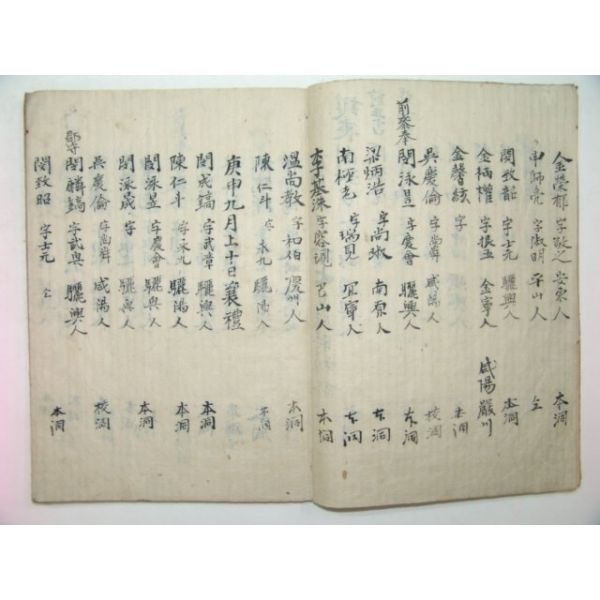 金榮郁 字敬之 安東人 本洞
申師亮 字淑明 平山人 仝
閔致韶 字士元 驪興人 本洞
金炳爟 字振玉 金寧人 咸陽嚴川
金馨絃 字 本洞
吳慶倫 字尙舜 咸陽人 校洞
前參奉 閔泳昱 字慶會 驪興人 本洞
梁炳浩 字尙淑 南原人 本洞
南極老 字瑞見 宜寧人 本洞
李基洙 字容現 巴山人 本洞
溫尙敎 字和伯 慶州人 本洞
陳仁斗 字永九 驪陽人 本洞
庚申九月上十日襄禮
閔戒鎬 字武璋 驪興人 本洞
陳仁斗 字永九 驪陽人 本洞
閔泳昱 字慶會 驪興人 本洞
閔泳晟 字 驪興人
吳慶倫 字尙舜 咸陽人 校洞
郡守 閔麟鎬 字武與 驪興人
閔致昭 字士元 仝 本洞